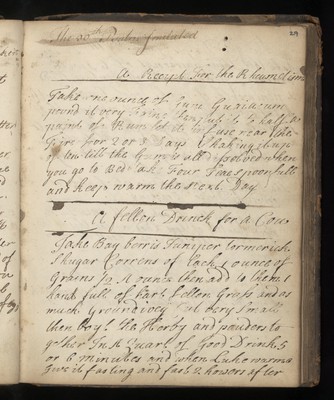 29
A Receipt for the Rhumetism
Take one ounce of Gum Guaiacum
pound it very fine then put it to half a
pint of Rum let it infuse near the
fire for 2 or 3 Days Shaking it up
often till the Gum is all dissolved when
you go to Bed take Four Teaspoonfull
and Keep warm the next Day
A fellen Drinck for a Cow
Take Bay berris Juniper tormerick
Shugar Correns of Each 1 ounce of
Grains ounce then add to them 1
hand full of fellon Grass and as
much Ground ivey Cut very Small
then boyl the Herbs and pouders to
gether In A Quart of Good Drink 5
or 6 minutes and when Luke warm
Give it fasting and fast 2 howers after